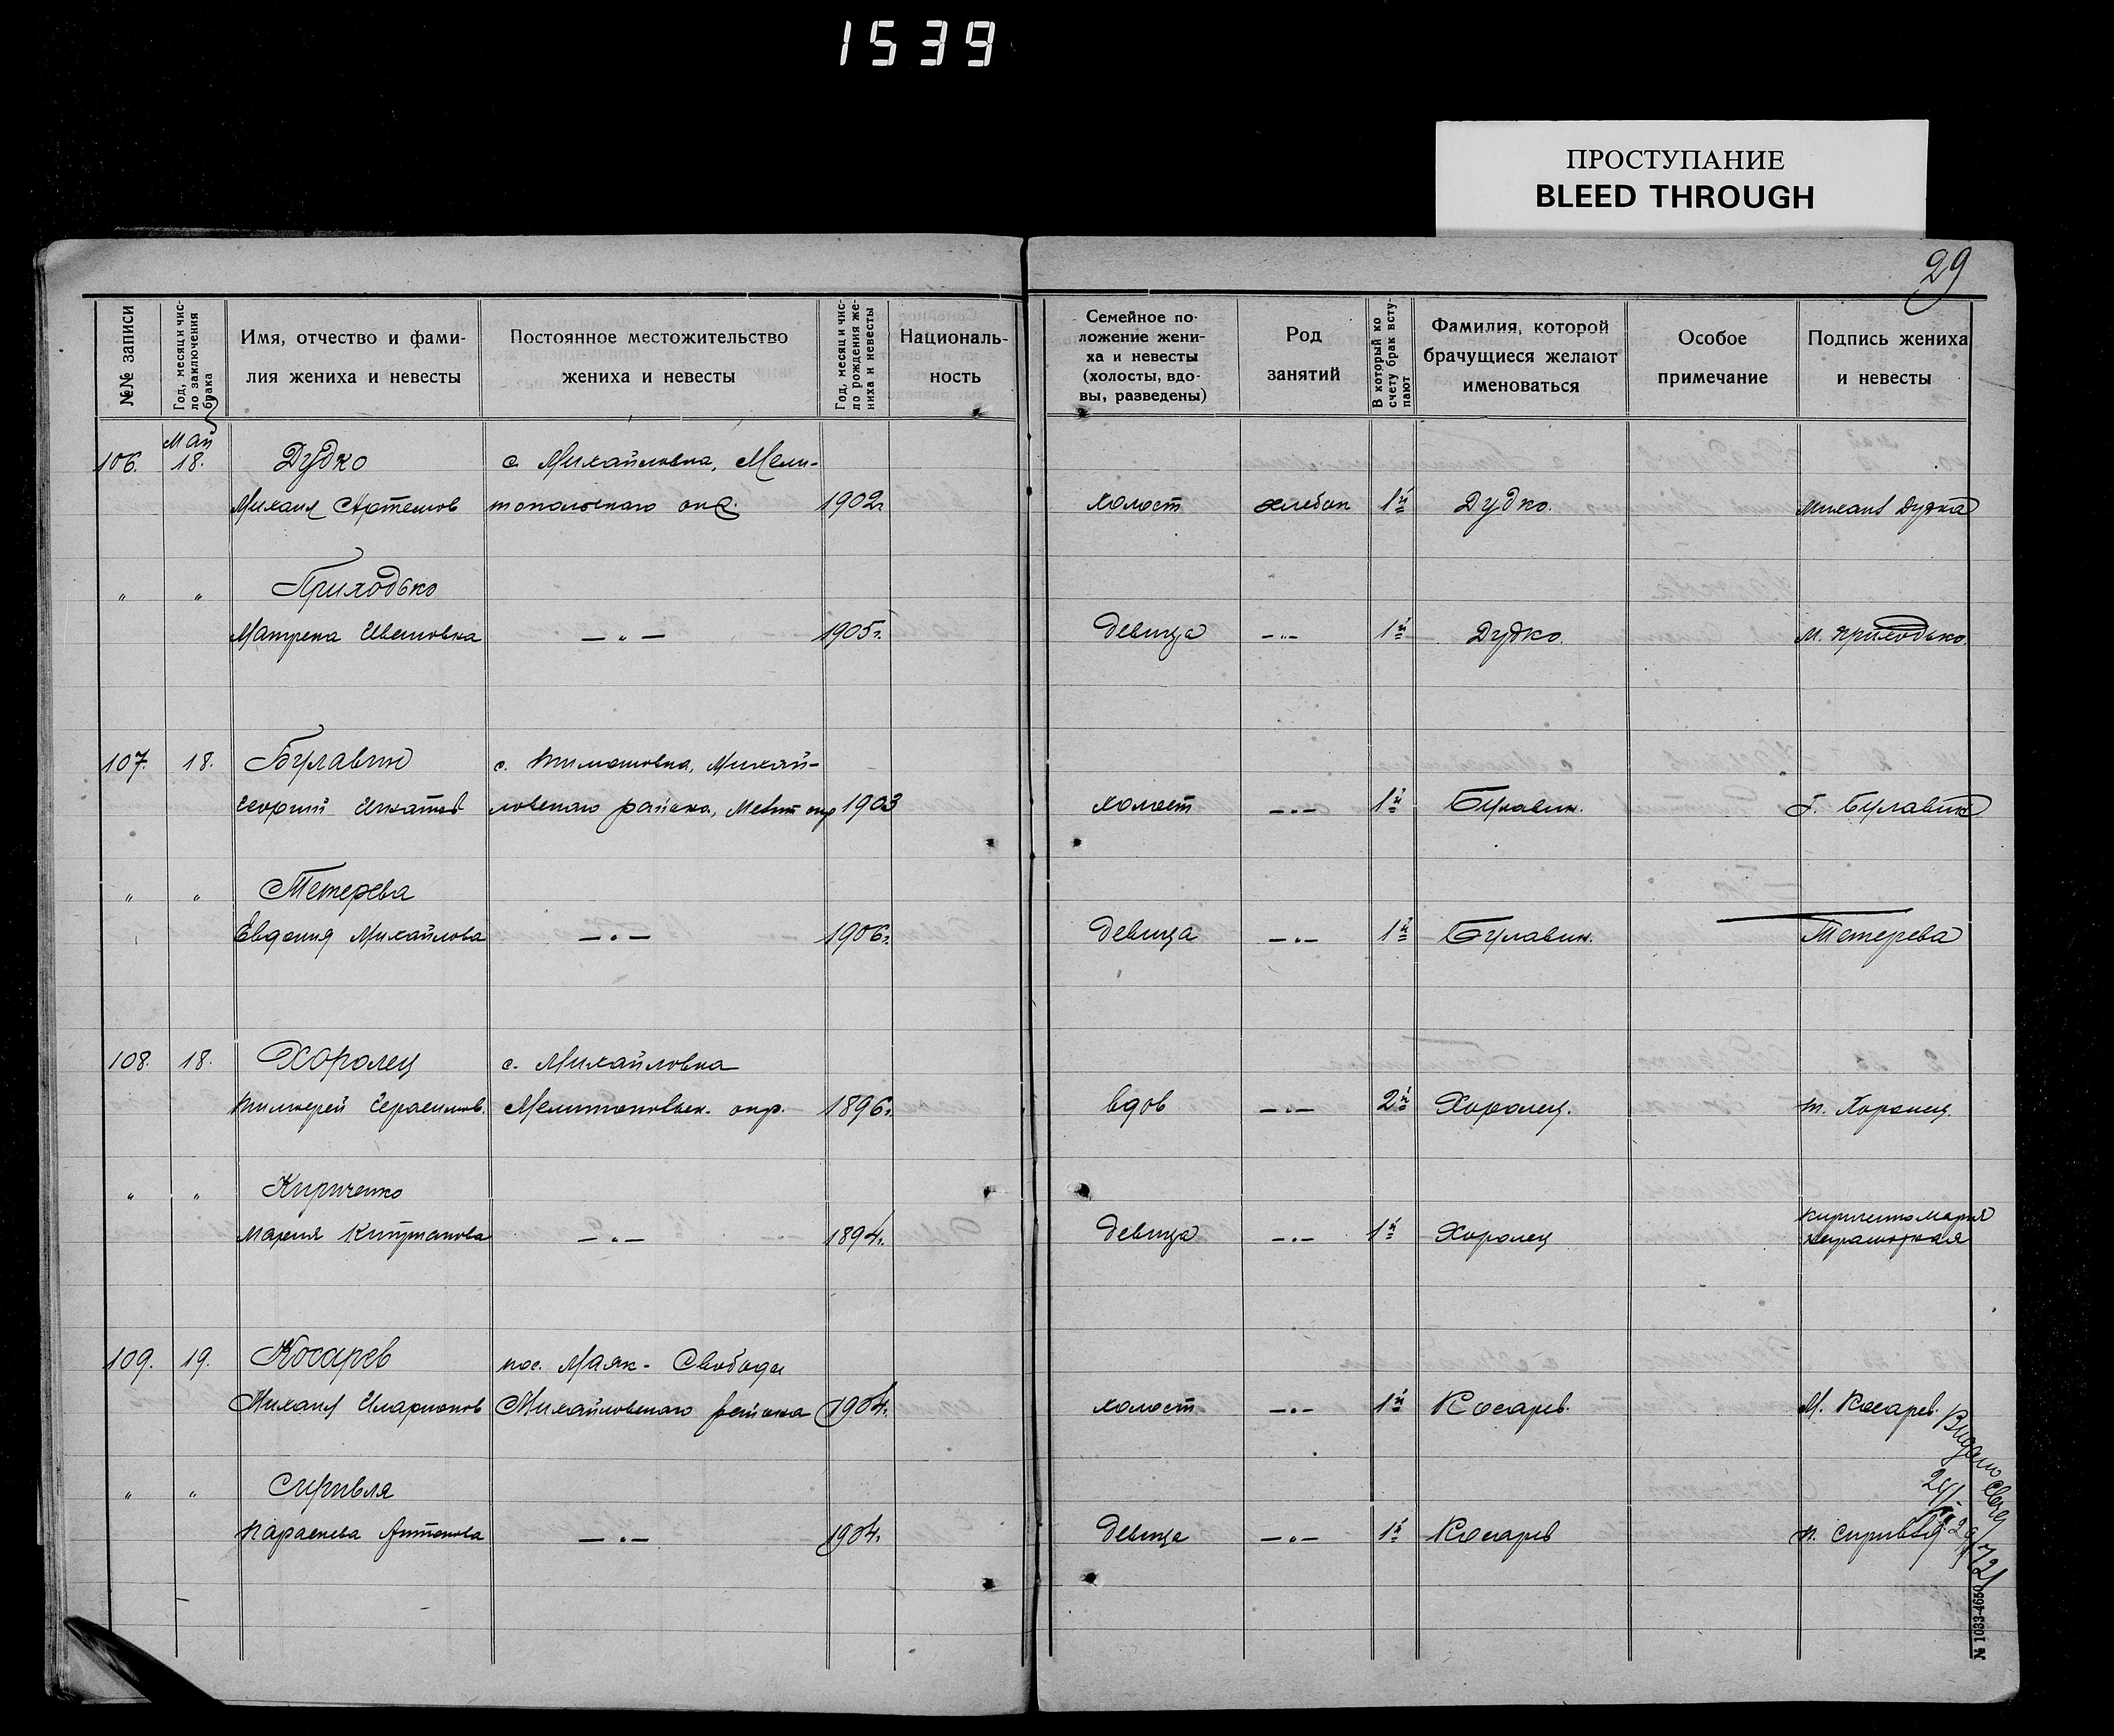 1539
ПРОСТУПАНИЕ
BLEED THROUGH
29
№№ записи
Год, месяц и чис-
ло заключения
брака
Имя, отчество и фами-
лия жениха и невесты
Постоянное местожительство
жениха и невесты
Год, месяц и чис-
ло рождения же-
ниха и невесты
Националь-
ность
Семейное по-
ложение жени-
ха и невесты
(холосты, вдо-
вы, разведены)
Род
занятий
В который ко
счету брак всту-
пают
Фамилия, которой
брачущиеся желают
именоваться
Особое
примечание
Подпись жениха
и невесты
Май
106. 18. Дудко с. Михайловка, Мели-
Михаил Артемов топольского окр. 1902г. холост хлебоп 1й Дудко. Михаил Дудка
" " Приходько
Матрена Ивановна — " — 1905г. девица — " — 1й Дудко. М. Приходько.
107. 18. Булавин с. Тимошовка, Михай-
Георгий Игнатов ловского района, Мелит окр 1903 холост — " — 1й Булавин. Г. Булавин
" " Тетерева
Евдокия Михайлова — " — 1906г. девица — " — 1й Булавин. Тетерева
108. 18. Хоролец с. Михайловка
Тимофей Герасимов. Мелитопольск. окр. 1896г. вдов — " — 2й Хоролец. Т. Хоролец.
" " Кириченко
Мария — " — 1894г. девица — " — 1й Хоролец Кириченко Мария
неграмотная
109. 19. Косарев пос. Маяк-Свободы
Михаил Иларионов Михайловского района 1904г. холост — " — 1й Косарев. М. Косарев.
" " Сиривля
Параскева Антонова — " — 1904г. девица — " — 1й Косарев П. Сиривля
Видано
721
№ 1033-4650